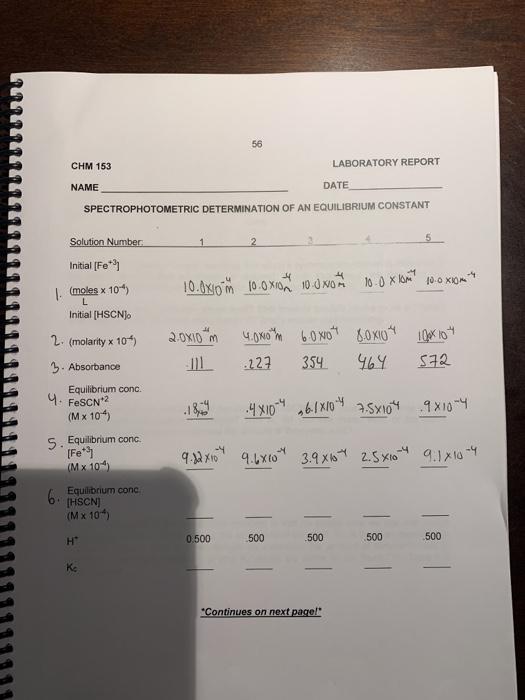 56
CHM 153 LABORATORY REPORT
NAME DATE
SPECTROPHOTOMETRIC DETERMINATION OF AN EQUILIBRIUM CONSTANT
Solution Number: 1 2 3 4 5
Initial [Fe⁺³]
1. (moles x 10⁻⁴) 10.0x10⁻⁴m 10.0x10⁻⁴ 10.0x10⁻⁴m 10.0x10⁻⁴m 10.0x10m⁻⁴
L
Initial [HSCN]₀
2. (molarity x 10⁻⁴) 2.0x10⁻⁴m 4.0x10⁻⁴m 6.0x10⁻⁴ 8.0x10⁻⁴ 10⁻⁴
3. Absorbance .111 .227 354 464 572
Equilibrium conc.
4. FeSCN⁺² .4x10⁻⁴ .61x10⁻⁴ 7.5x10⁻⁴ .9x10⁻⁴
(M x 10⁻⁴)
5. Equilibrium conc.
[Fe⁺³] x10⁻⁴ 9.6x10⁻⁴ 3.9x10⁻⁴ 2.5x10⁻⁴ 9.1x10⁻⁴
(M x 10⁻⁴)
6. Equilibrium conc.
[HSCN]
(M x 10⁻⁴)
H⁺ 0.500 .500 .500 .500 .500
Kc
*Continues on next page!*